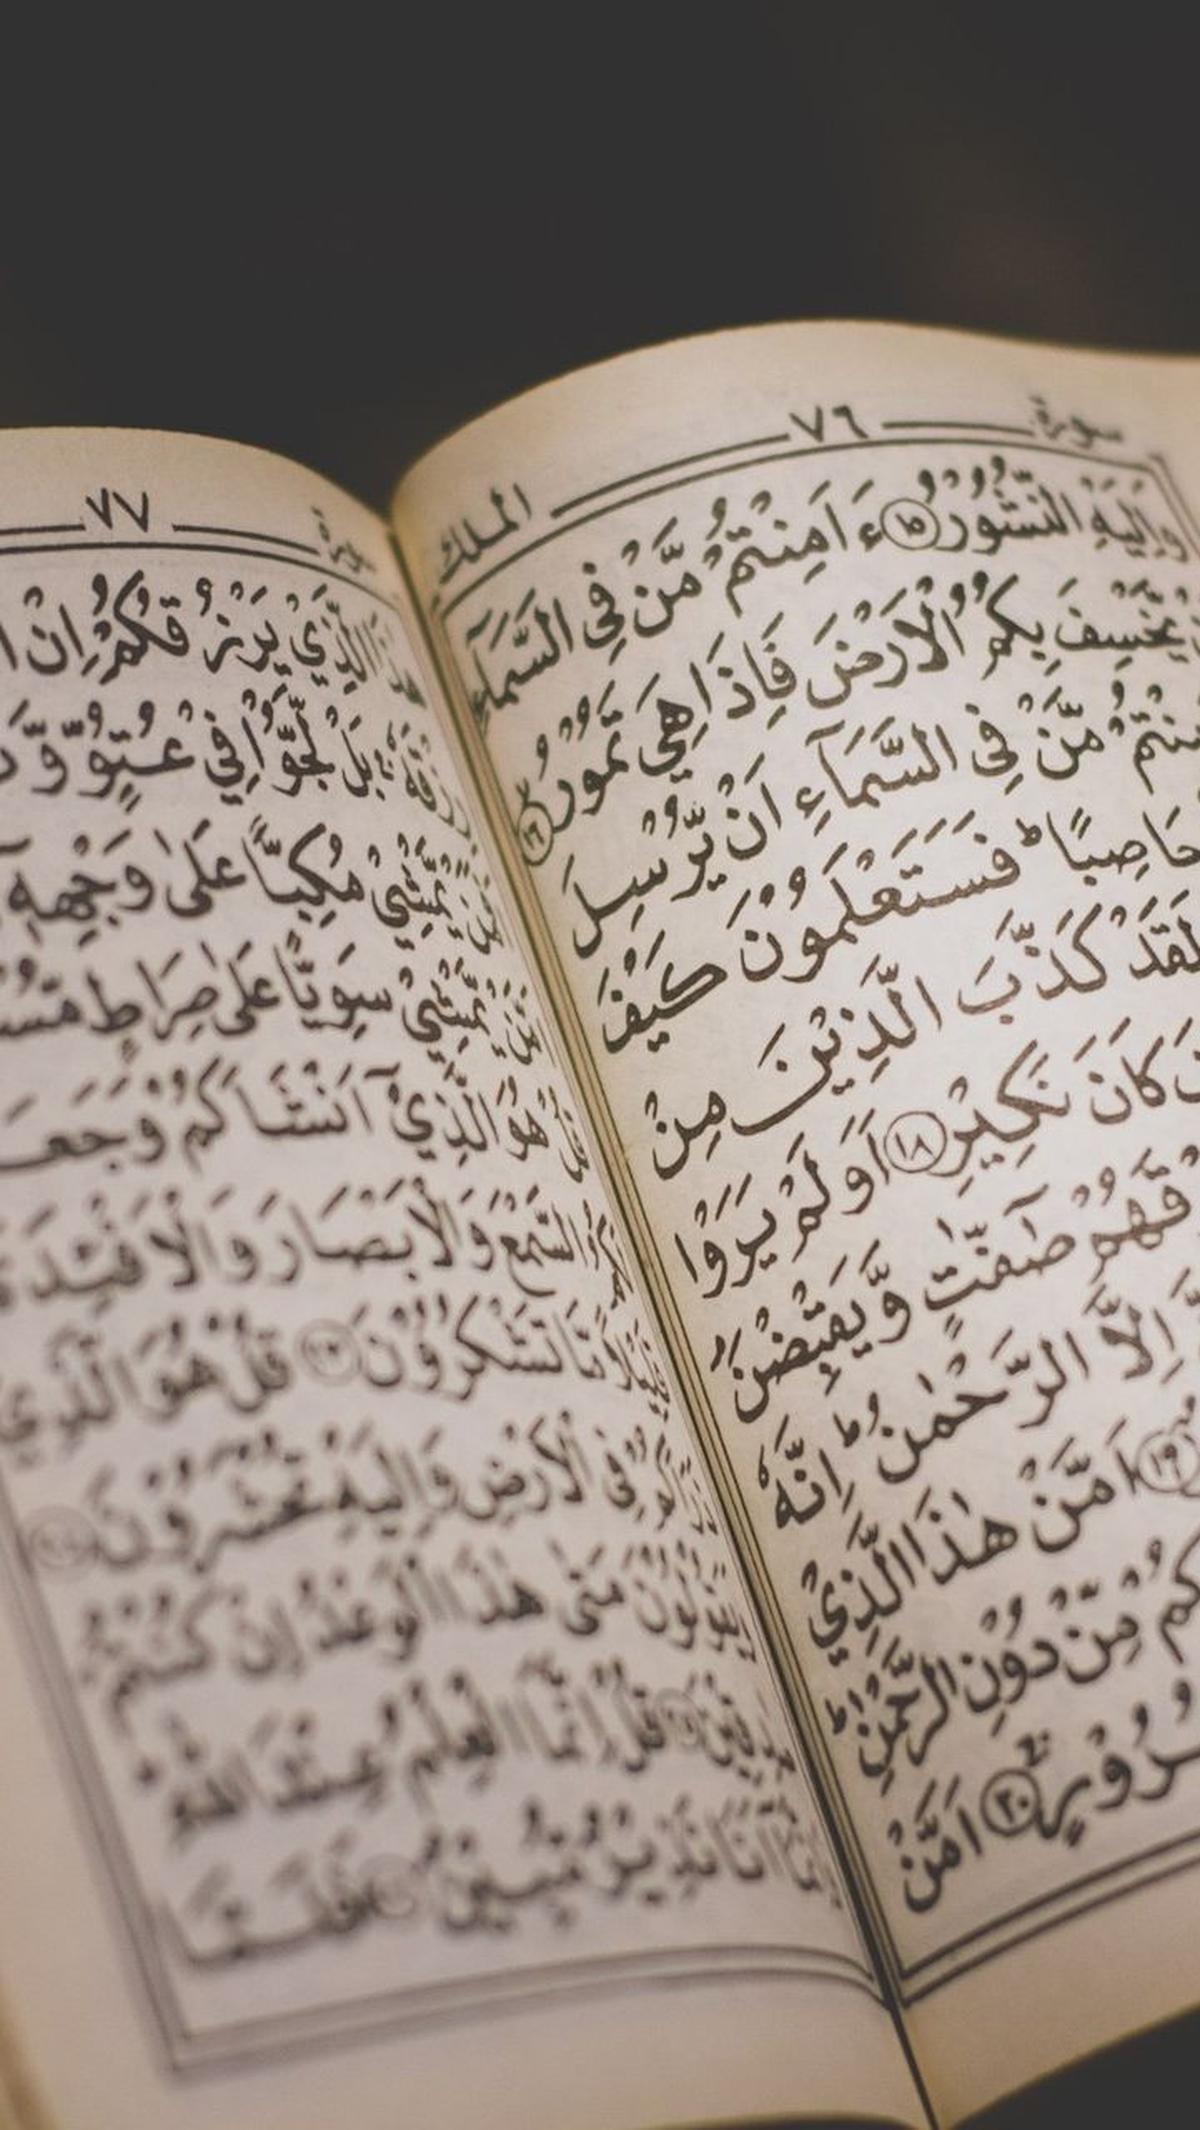 سورة ٧٦ الملك
وَاِلَيْهِ النُّشُوْرُ ﴿١٥﴾ ءَ اَمِنْتُمْ مَّنْ فِى السَّمَآءِ
يَّخْسِفَ بِكُمُ الْاَرْضَ فَاِذَا هِيَ تَمُوْرُ ﴿١٦﴾
مَّنْ فِى السَّمَآءِ اَنْ يُّرْسِلَ
حَاصِبًا ؕ فَسَتَعْلَمُوْنَ كَيْفَ
لَقَدْ كَذَّبَ الَّذِيْنَ مِنْ
كَانَ نَكِيْرِ ﴿١٨﴾ اَوَلَمْ يَرَوْا
صٰٓفّٰتٍ وَّيَقْبِضْنَ ؔ
اِلَّا الرَّحْمٰنُ ؕ اِنَّهٗ
﴿١٩﴾ اَمَّنْ هٰذَا الَّذِيْ
مِّنْ دُوْنِ الرَّحْمٰنِ ؕ
﴿٢٠﴾ اَمَّنْ
٧٧ سورة
هٰذَا الَّذِيْ يَرْزُقُكُمْ اِنْ
رِزْقَهٗ ۚ بَلْ لَّجُّوْا فِيْ عُتُوٍّ وَّ
يَّمْشِيْ مُكِبًّا عَلٰى وَجْهِهٖٓ
يَّمْشِيْ سَوِيًّا عَلٰى صِرَاطٍ
هُوَ الَّذِيْٓ اَنْشَاَكُمْ وَجَعَ
السَّمْعَ وَالْاَبْصَارَ وَالْاَفْـِٕدَةَ
قَلِيْلًا مَّا تَشْكُرُوْنَ ﴿٢٣﴾ قُلْ هُوَ الَّذِيْ
فِى الْاَرْضِ وَاِلَيْهِ تُحْشَرُوْنَ
وَيَقُوْلُوْنَ مَتٰى هٰذَا الْوَعْدُ اِنْ كُنْتُمْ
صٰدِقِيْنَ قُلْ اِنَّمَا الْعِلْمُ عِنْدَ اللّٰهِ
اَنَا نَذِيْرٌ مُّبِيْنٌ